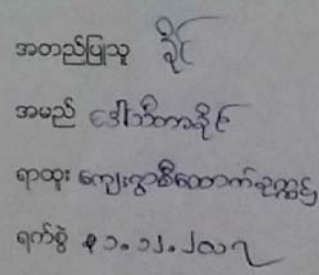 အတည်ပြုသူ ခိုင်
အမည် ဒေါ်သီတာခိုင်
ရာထူး ကျေးရွာစီထောက်ဥက္ကဋ္ဌ
ရက်စွဲ ၃၁.၁၂.၂၀၁၇